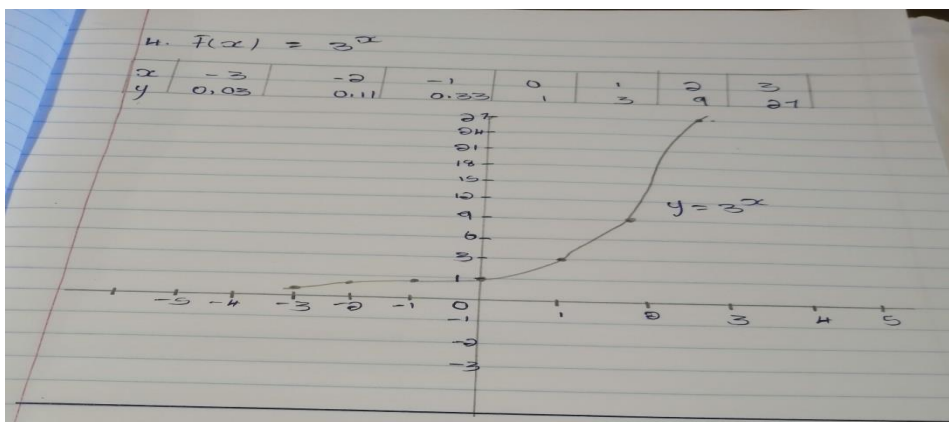 4. F(x) = 3^x
x | -3 | -2 | -1 | 0 | 1 | 2 | 3
y | 0,03 | 0.11 | 0.33 | 1 | 3 | 9 | 27
27
24
21
18
15
12
9
y = 3^x
6
3
1
-5 -4 -3 -2 -1 0 1 2 3 4 5
-1
-2
-3